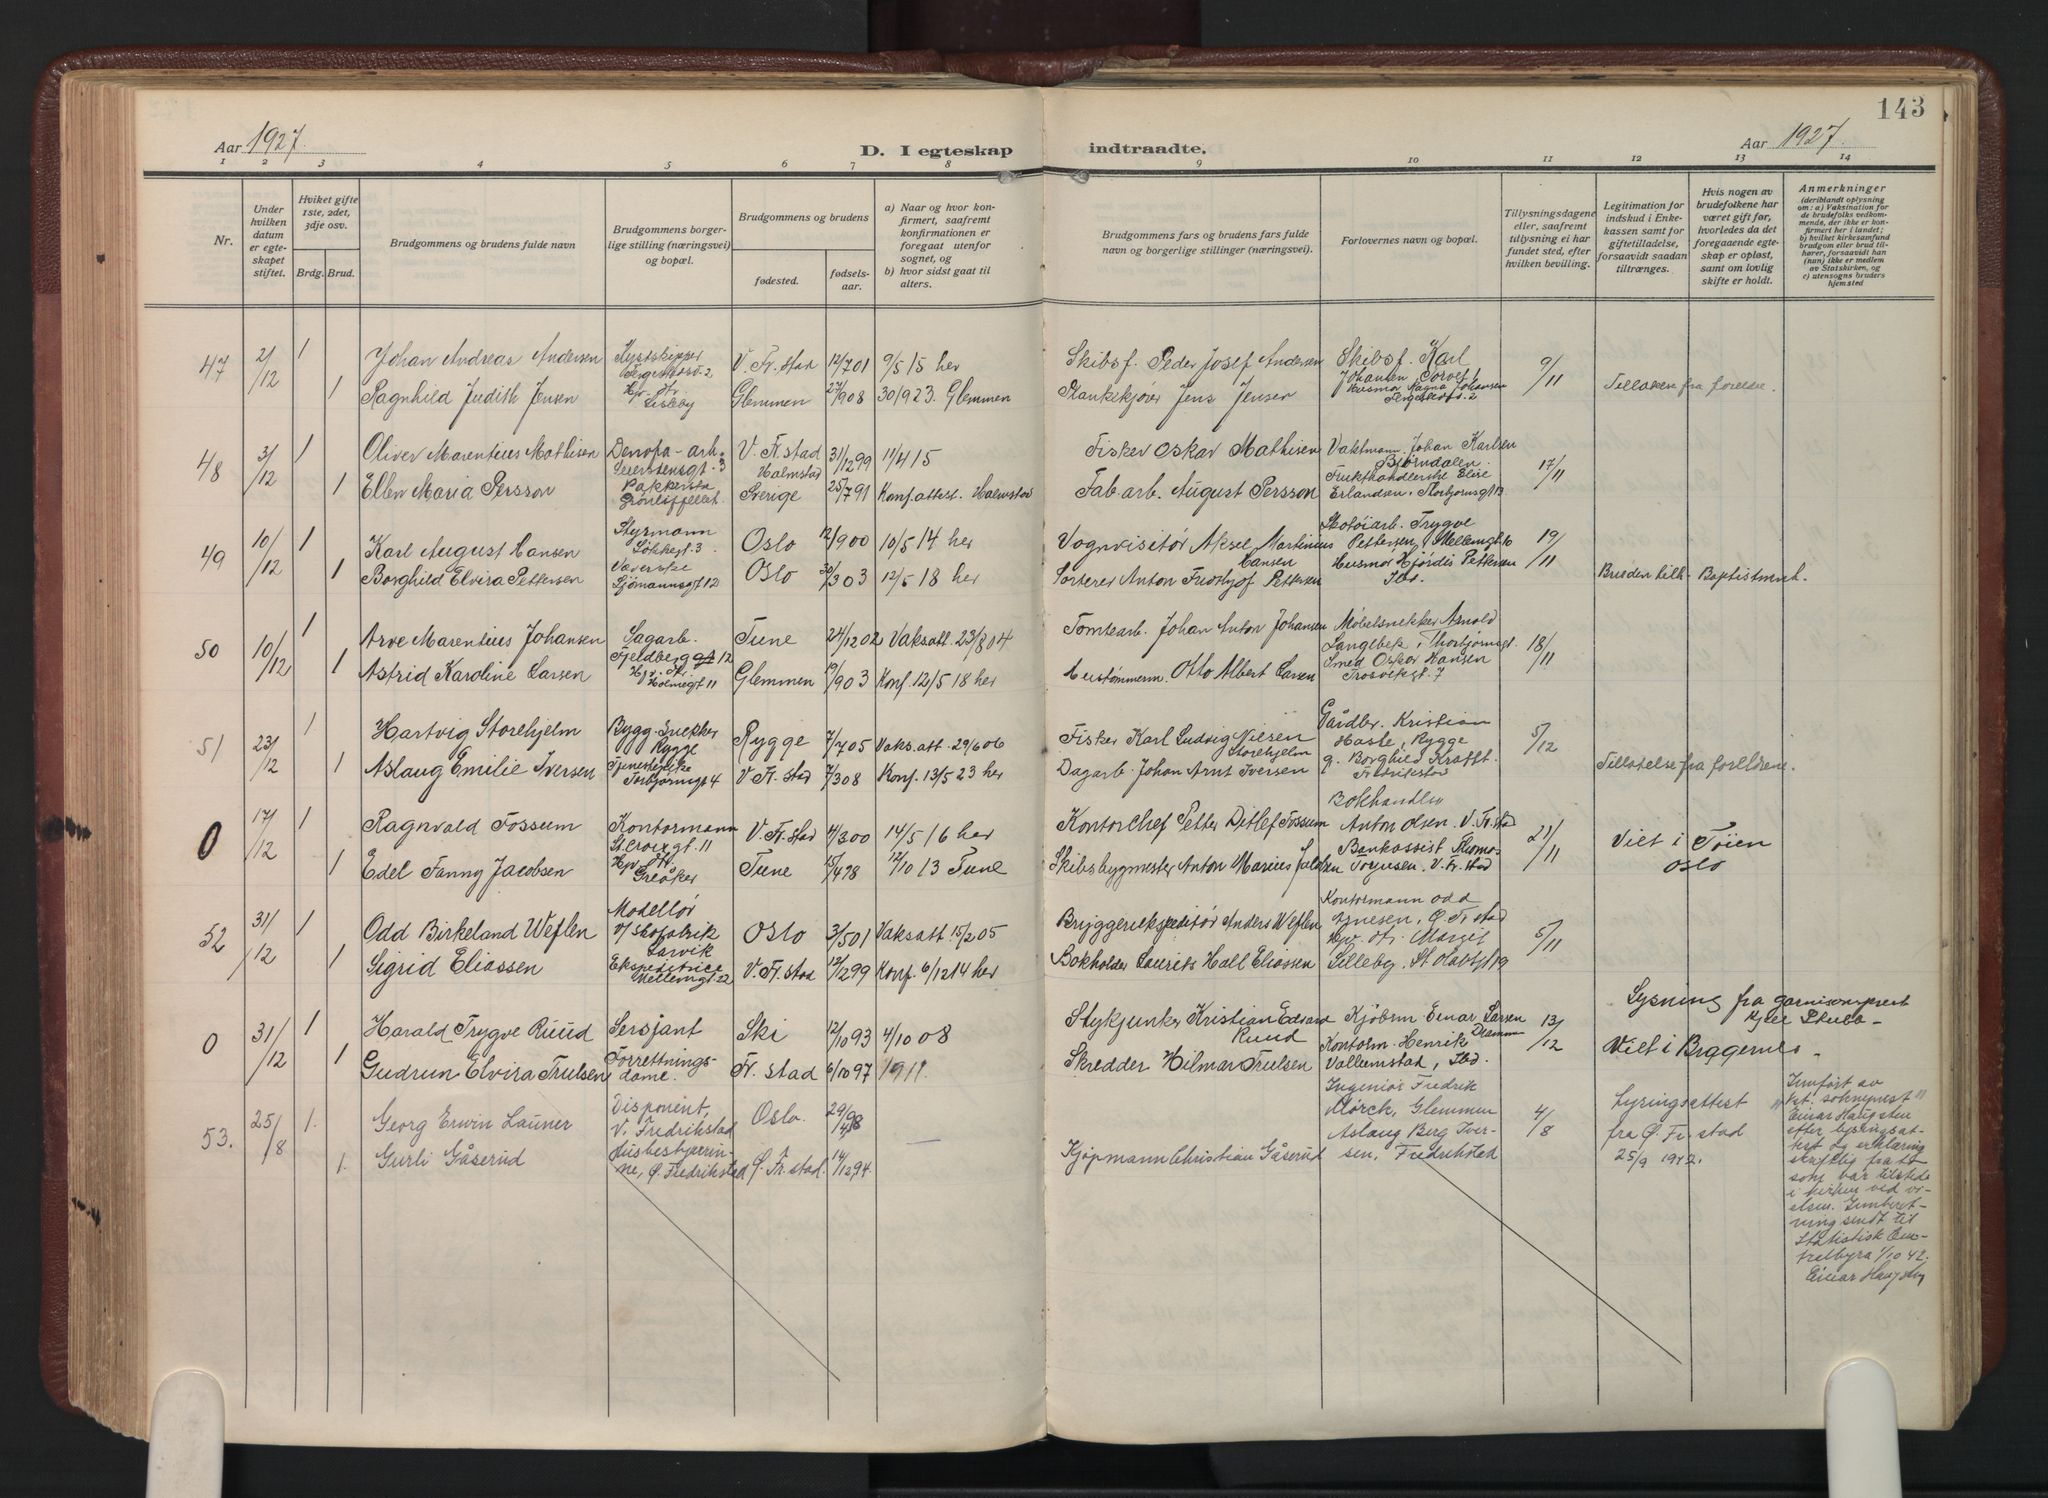 143
Aar 1927. D. I egteskap indtraadte. Aar 1927.
1 2 3 4 5 6 7 8 9 10 11 12 13 14
Nr.
Under hvilken datum er egteskapet stiftet.
Hviket gifte 1ste, 2det, 3dje osv.
Brdg. Brud.
Brudgommens og brudens fulde navn
Brudgommens borgerlige stilling (næringsvei) og bopæl.
Brudgommens og brudens
fødested.
fødselsaar.
a) Naar og hvor konfirmert, saafremt konfirmationen er foregaat utenfor sognet, og
b) hvor sidst gaat til alters.
Brudgommens fars og brudens fars fulde navn og borgerlige stillinger (næringsvei).
Forlovernes navn og bopæl.
Tillysningsdagene eller, saafremt tillysning ei har fundet sted, efter hvilken bevilling.
Legitimation for indskud i Enkekassen samt for giftetilladelse, forsaavidt saadan tiltrænges.
Hvis nogen av brudefolkene har været gift før, hvorledes da det foregaaende egteskap er opløst, samt om lovlig skifte er holdt.
Anmerkninger
(deriblandt oplysning om: a) Vaksination for de brudefolks vedkommende, der ikke er konfirmert her i landet;
b) hvilket kirkesamfund brudgom eller brud tilhører, forsaavidt han (hun) ikke er medlem av Statskirken, og
c) utensogns bruders hjemsted
47 2/12 1 Johan Andreas Andersen Kystskipper V. Fr.stad 12/701 9/5 15 her Skibsf. Peder Josef Andersen Skibsf. Karl Johansen, 9/11
1 Ragnhild Judith Jensen Hpr. dtr. Lisleby Glemmen 27/908 30/9 23. Glemmen Plankekjører Jens Jensen Husmor Ragna Johansen Tillatelse fra foreldre.
48 3/12 1 Oliver Marentius Mathisen Denofa-arb. V. Fr.stad 31/1299 11/4 15 Fisker Oskar Mathisen Vaktmann Johan Karlsen Bjørndalen. 17/11
1 Ellen Maria Persson Pakkerske Halmstad Sverige 25/791 Konf.attest. Halmstad Fab.arb. August Persson Frukthandlerske Elise Erlandsen, Thorbjørnsgt 13
49 10/12 1 Karl August Hansen Styrmann Løkkegt. 3. Oslo 12/900 10/5 14 her Vognvisitør Aksel Martinius Hansen Skotøiarb. Trygve Pettersen, Mellemgt 10 19/11
1 Borghild Elvira Pettersen Væverske Sjømannsgt 12 Oslo 30/303 12/5 18 her Sorterer Anton Fridthjof Pettersen Husmor Hjørdis Pettersen Ibd. Bruden tilh. Baptistmenh.
50 10/12 1 Arve Marentius Johansen Sagarb. Fjeldberggt 12 Tune 24/1202 Vaksatt. 23/8 04 Tomtearb. Johan Anton Johansen Møbelsnekker Arnold Langlbek, Thorbjørnsgt. 18/11
1 Astrid Karoline Larsen Hpr. dtr. Holmegt 11 Glemmen 19/903 Konf. 12/5 18 her Hustømmerm. Otto Albert Larsen Smed Oskar Hansen Trosvikgt. 7
51 23/12 1 Hartvig Storehjelm Bygg-Snekker Rygge Rygge 7/705 Vaks.att. 29/6 06 Fisker Karl Ludvig Nielsen Storehjelm Gårdbr. Kristian Haste, Rygge 5/12
1 Aslaug Emilie Iversen Tjenestepike Torbjørnsgt 4 V. Fr. stad 7/308 Konf. 13/5 23 her Dagarb. Johan Arnt Iversen g. Borghild Krafft. Fredrikstad Tillatelse fra foreldrene.
0 17/12 1 Ragnvald Fossum Kontormann St. Croixgt. 11 V. Fr.stad 4/300 14/5 16 her Kontorchef Petter Ditlef Fossum Bokhandler Anton Olsen. V. Fr.stad 21/11 Viet i Tøien Oslo
1 Edel Fanny Jacobsen Hpr. dtr. Greåker Tune 15/498 12/10 13 Tune Skibsbygmester Anton Marius Jakobsen Bankassist. Thomas Torgersen. V. Fr.stad
52 31/12 1 Odd Birkeland Weflen Modellør v/ skofabrik Larvik Oslo 3/501 Vaksatt 15/2 05 Bryggeriekspeditør Anders Weflen Kontormann Odd Ø. Fr.stad 5/11
1 Sigrid Eliassen Ekspeditrice Mellemgt 22 V. Fr.stad 12/299 Konf. 6/12 14 her Bokholder Laurits Hall Eliassen Hpr. dtr. Margit Lilleby, St. Olavsgt 19
0 31/12 1 Harald Trygve Ruud Sersjant Ski 12/1093 4/10 08 Stykjunker Kristian Edvard Ruud Kjøbm. Einar Larsen Dramm. 13/12 Lysning fra garnisonsprest
1 Gudrun Elvira Trulsen Forretningsdame. Fr. stad 6/1097 1911. Skredder Hilmar Trulsen Kontorm. Henrik Vallemstad, Ibd. Viet i Bragernes.
53. 25/8 1. Georg Erwin Launer Disponent, V. Fredrikstad Oslo. 29/498 — Ingeniør Fredrik Mørck, Glemmen 4/8 Lysingsattest fra Ø. Fr. stad 25/9 1942.
1. Gurli Gåserud Husbestyrerinne, Ø Fredrikstad Ø. Fr.stad. 14/1294. Kjøpmann Christian Gåserud Aslaug Berg Iversen, Fredrikstad
Innført av
kst. sokneprest
Einar Haugsten
efter lysingsattest og erklæring
skriftlig fra to
som var tilstede
i kirken ved vielsen. Innberetning sendt til
Statistisk Sentralbyrå 1/10 42.
Einar Haugsten